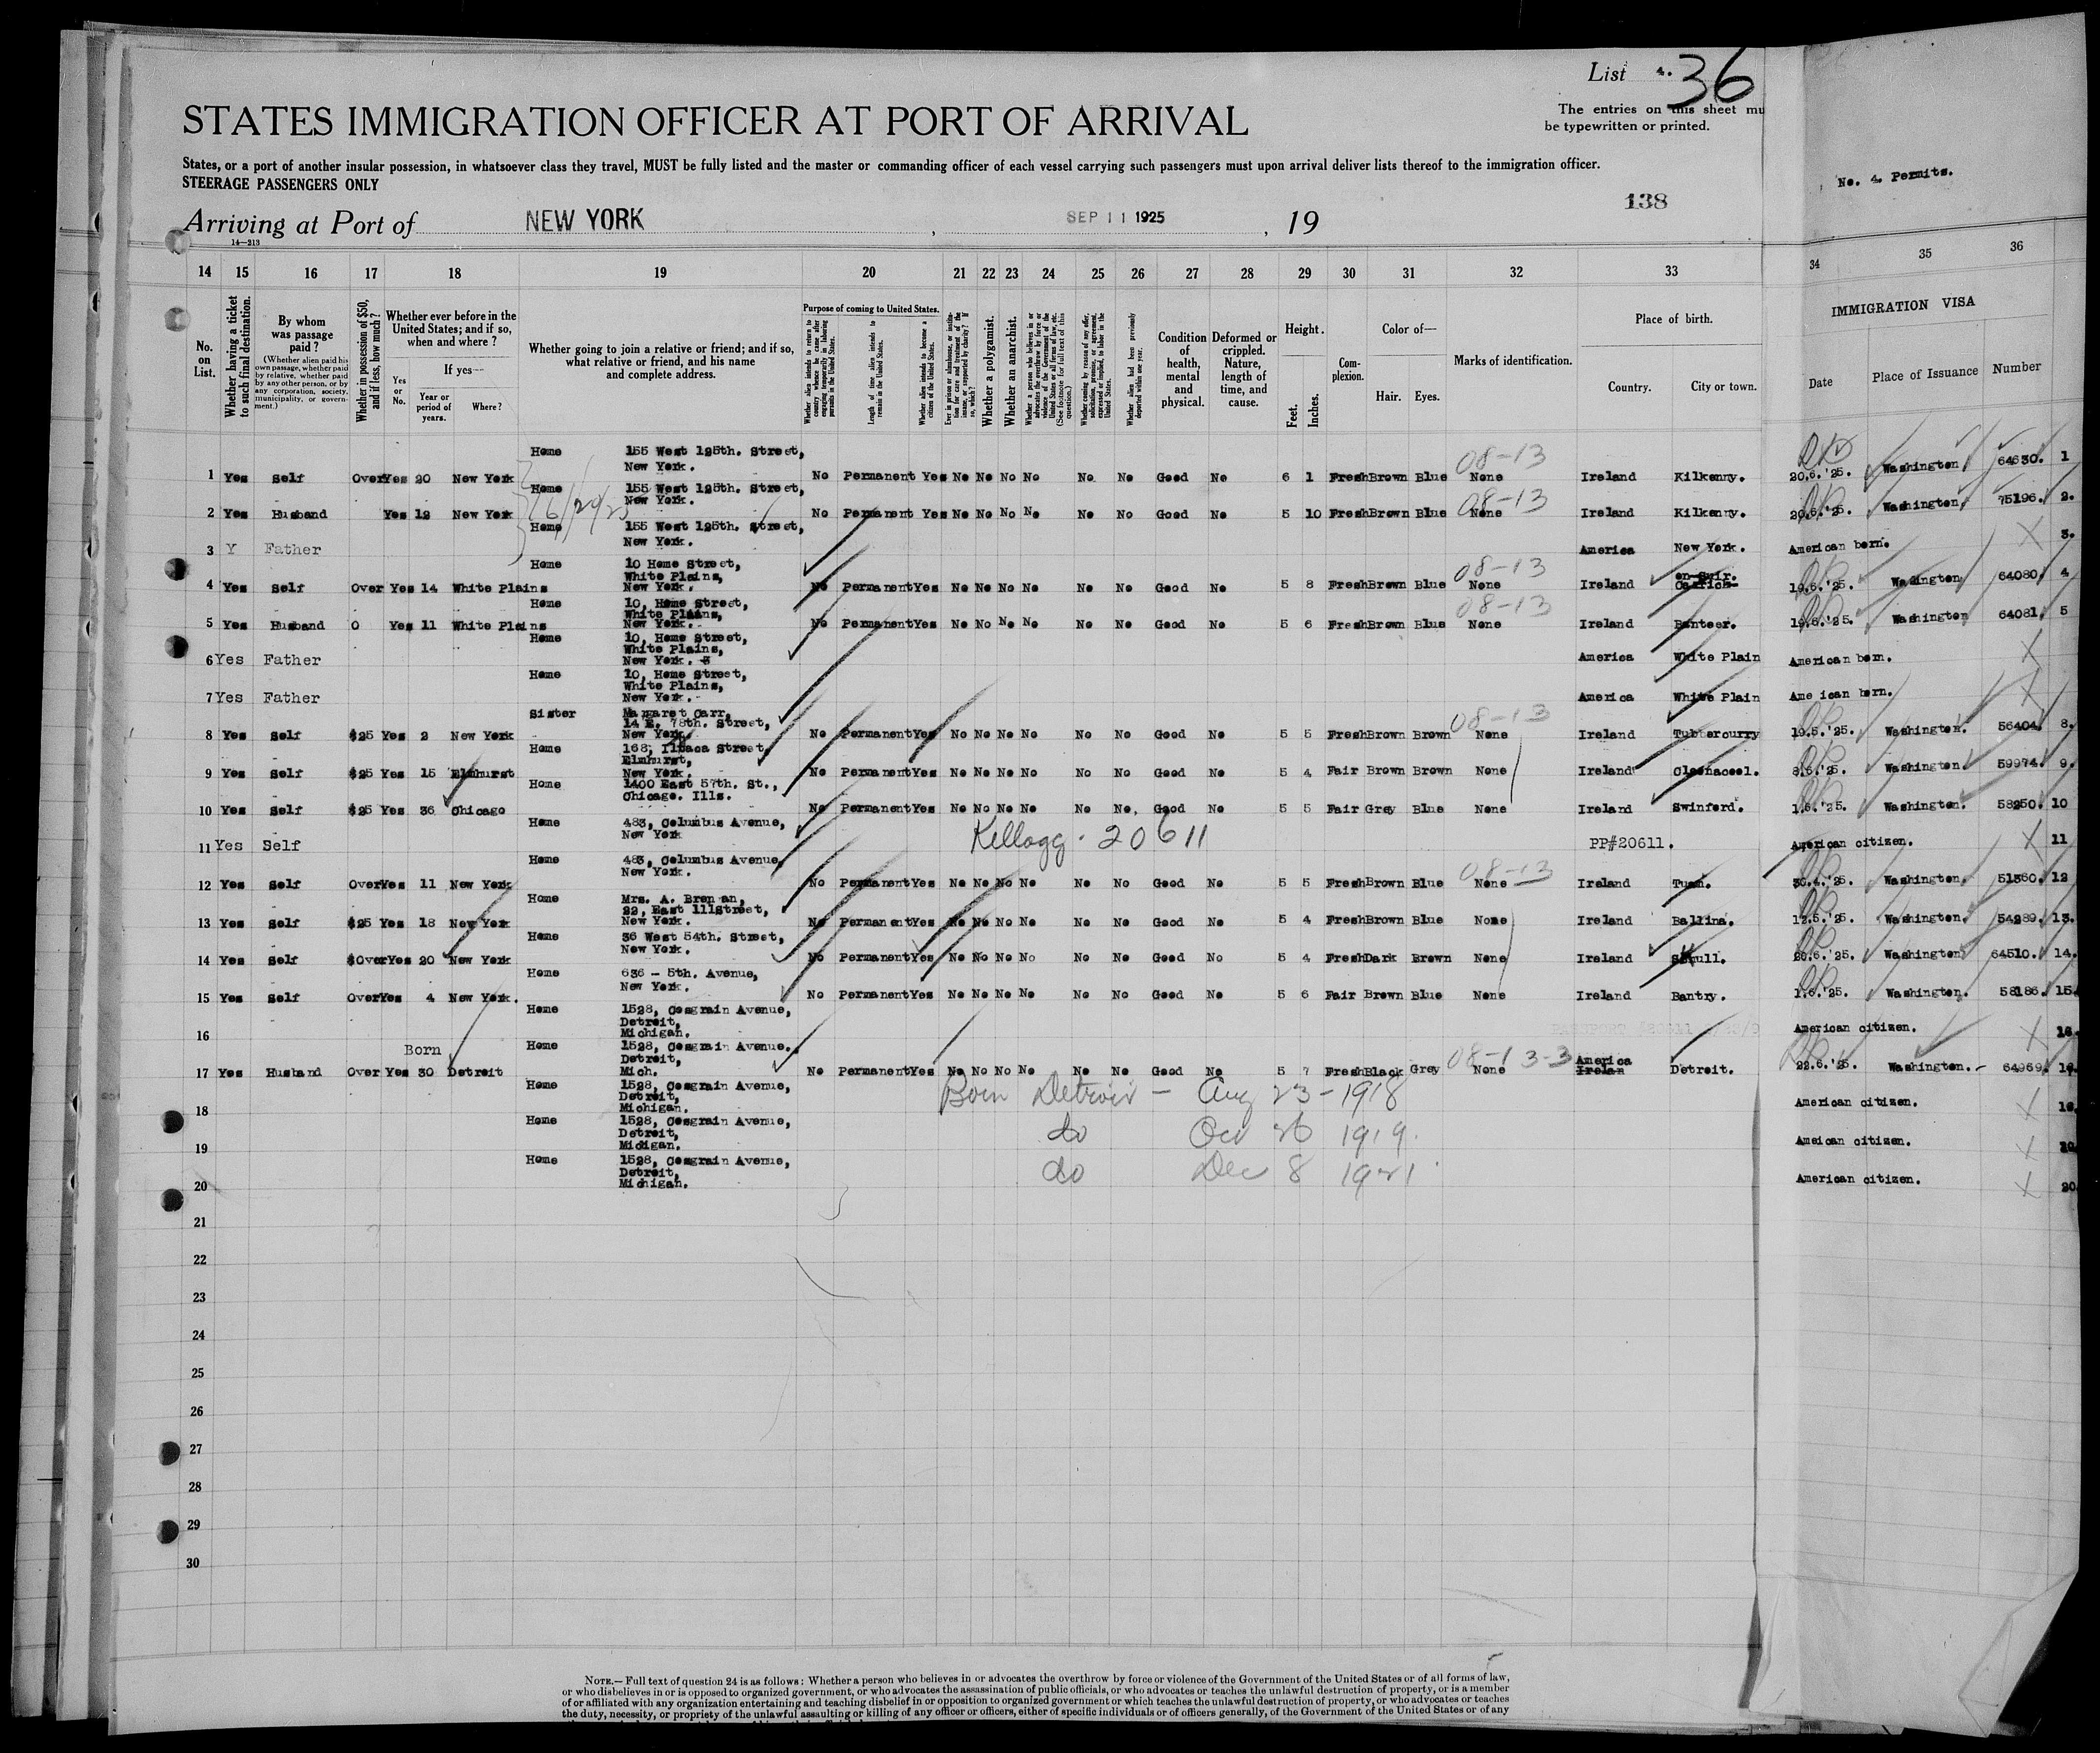 List 4. 36
STATES IMMIGRATION OFFICER AT PORT OF ARRIVAL
The entries on this sheet mu
be typewritten or printed.
States, or a port of another insular possession, in whatsoever class they travel, MUST be fully listed and the master or commanding officer of each vessel carrying such passengers must upon arrival deliver lists thereof to the immigration officer.
STEERAGE PASSENGERS ONLY
No. 4. Permits.
138
Arriving at Port of NEW YORK, SEP 11 1925, 19
14—213
14 15 16 17 18 19 20 21 22 23 24 25 26 27 28 29 30 31 32 33 34 35 36
No. on List.
Whether having a ticket to such final destination.
By whom was passage paid?
(Whether alien paid his own passage, whether paid by relative, whether paid by any other person, or by any corporation, society, municipality, or government.)
Whether in possession of $50, and if less, how much?
Whether ever before in the United States; and if so, when and where?
Yes or No.
If yes—
Year or period of years.
Where?
Whether going to join a relative or friend; and if so, what relative or friend, and his name and complete address.
Purpose of coming to United States.
Whether alien intends to return to country whence he came after engaging temporarily in laboring pursuits in the United States.
Length of time alien intends to remain in the United States.
Whether alien intends to become a citizen of the United States.
Ever in prison or almshouse, or institution for care and treatment of the insane, or supported by charity? If so, which?
Whether a polygamist.
Whether an anarchist.
Whether a person who believes in or advocates the overthrow by force or violence of the Government of the United States or all forms of law, etc. (See footnote for full text of this question.)
Whether coming by reason of any offer, solicitation, promise, or agreement, expressed or implied, to labor in the United States.
Whether alien had been previously deported within one year.
Condition of health, mental and physical.
Deformed or crippled. Nature, length of time, and cause.
Height.
Feet. Inches.
Complexion.
Color of—
Hair. Eyes.
Marks of identification.
Place of birth.
Country. City or town.
IMMIGRATION VISA
Date Place of Issuance Number
Home 155 West 125th. Street,
New York. 08-13
1 Yes Self Over Yes 20 New York No Permanent Yes No No No No No No Good No 6 1 Fresh Brown Blue None Ireland Kilkenny. 20.6.'25. Washington 64630. 1
Home 155 West 125th. Street,
New York. 08-13
2 Yes Husband Yes 12 New York No Permanent Yes No No No No No No Good No 5 10 Fresh Brown Blue None Ireland Kilkenny. 20.6.'25. Washington. 75196. 2.
Home 155 West 125th. Street,
New York.
3 Y Father America New York. American born. X 3.
Home 10 Home Street,
White Plains, 08-13 on-Suir.
4 Yes Self Over Yes 14 White Plains New York. No Permanent Yes No No No No No No Good No 5 8 Fresh Brown Blue None Ireland Carrick- 19.6.'25. Washington 64080. 4
Home 10, Home Street,
White Plains, 08-13
5 Yes Husband 0 Yes 11 White Plains New York. No Permanent Yes No No No No No No Good No 5 6 Fresh Brown Blue None Ireland Banteer. 19.6.'25. Washington 64081. 5
Home 10, Home Street,
White Plains,
6 Yes Father New York. America White Plain American born. X
Home 10, Home Street,
White Plains,
7 Yes Father New York. America White Plain Ame ican born. X
Sister Margaret Carr,
14 E. 78th. Street, 08-13
8 Yes Self $25 Yes 2 New York New York. No Permanent Yes No No No No No No Good No 5 5 Fresh Brown Brown None Ireland Tubbercurry 19.5.'25. Washington. 56404. 8.
Home 168, Ithaca Street,
Elmhurst,
9 Yes Self $25 Yes 15 Elmhurst New York. No Permanent Yes No No No No No No Good No 5 4 Fair Brown Brown None Ireland Cloonacool. 8.6.'25. Washington. 59974. 9.
Home 1400 East 57th. St.,
Chicago. Ills.
10 Yes Self $25 Yes 36 Chicago No Permanent Yes No No No No No No. Good No 5 5 Fair Grey Blue None Ireland Swinford. 1.6.'25. Washington. 58250. 10
Home 483, Columbus Avenue,
New York Kellogg. 20611
11 Yes Self PP#20611. American citizen. X 11
Home 483, Columbus Avenue,
New York. 08-13
12 Yes Self Over Yes 11 New York No Permanent Yes No No No No No No Good No 5 5 Fresh Brown Blue None Ireland Tuam. 30.4.'25. Washington. 51360. 12
Home Mrs. A. Brennan,
22, East 111Street,
13 Yes Self $25 Yes 18 New York New York. No Permanent Yes No No No No No No Good No 5 4 Fresh Brown Blue None Ireland Ballina. 12.5.'25. Washington. 54289. 13.
Home 36 West 54th. Street,
New York.
14 Yes Self $Over Yes 20 New York No Permanent Yes No No No No No No Good No 5 4 Fresh Dark Brown None Ireland Skull. 20.6.'25. Washington 64510. 14.
Home 636 - 5th. Avenue,
New York.
15 Yes Self Over Yes 4 New York. No Permanent Yes No No No No No No Good No 5 6 Fair Brown Blue None Ireland Bantry. 1.6.'25. Washington. 58186. 15.
Home 1528, Cosgrain Avenue,
Detroit,
16 Michigan. American citizen. X 16.
Home 1528, Cosgrain Avenue.
Born Detroit, 08-13-3 America
17 Yes Husband Over Yes 30 Detroit Mich. No Permanent Yes No No No No No No Good No 5 7 Fresh Black Grey None Irelan Detroit. 22.6.'25. Washington.- 64969.
Home 1528, Cosgrain Avenue,
Detroit, Born Detroit — Aug 23-1918
18 Michigan. American citizen. X
Home 1528, Cosgrain Avenue,
Detroit, do Oct 26 1919.
19 Michigan. Ameican citizen. X
Home 1528, Cosgrain Avenue,
Detroit, do Dec 8 1921
20 Michigan. American citizen. X 20
21
22
23
24
25
26
27
28
29
30
NOTE.—Full text of question 24 is as follows: Whether a person who believes in or advocates the overthrow by force or violence of the Government of the United States or of all forms of law,
or who disbelieves in or is opposed to organized government, or who advocates the assassination of public officials, or who advocates or teaches the unlawful destruction of property, or is a member
of or affiliated with any organization entertaining and teaching disbelief in or opposition to organized government or which teaches the unlawful destruction of property, or who advocates or teaches
the duty, necessity, or propriety of the unlawful assaulting or killing of any officer or officers, either of specific individuals or of officers generally, of the Government of the United States or of any